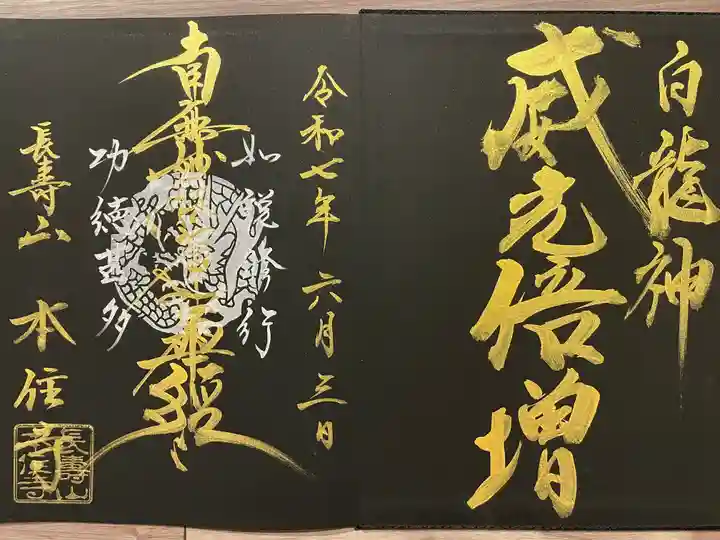 白龍神
威光倍増
令和七年 六月三日
如説修行
南無妙法蓮華経
功績甚多
長壽山 本住寺
長壽山
本住寺